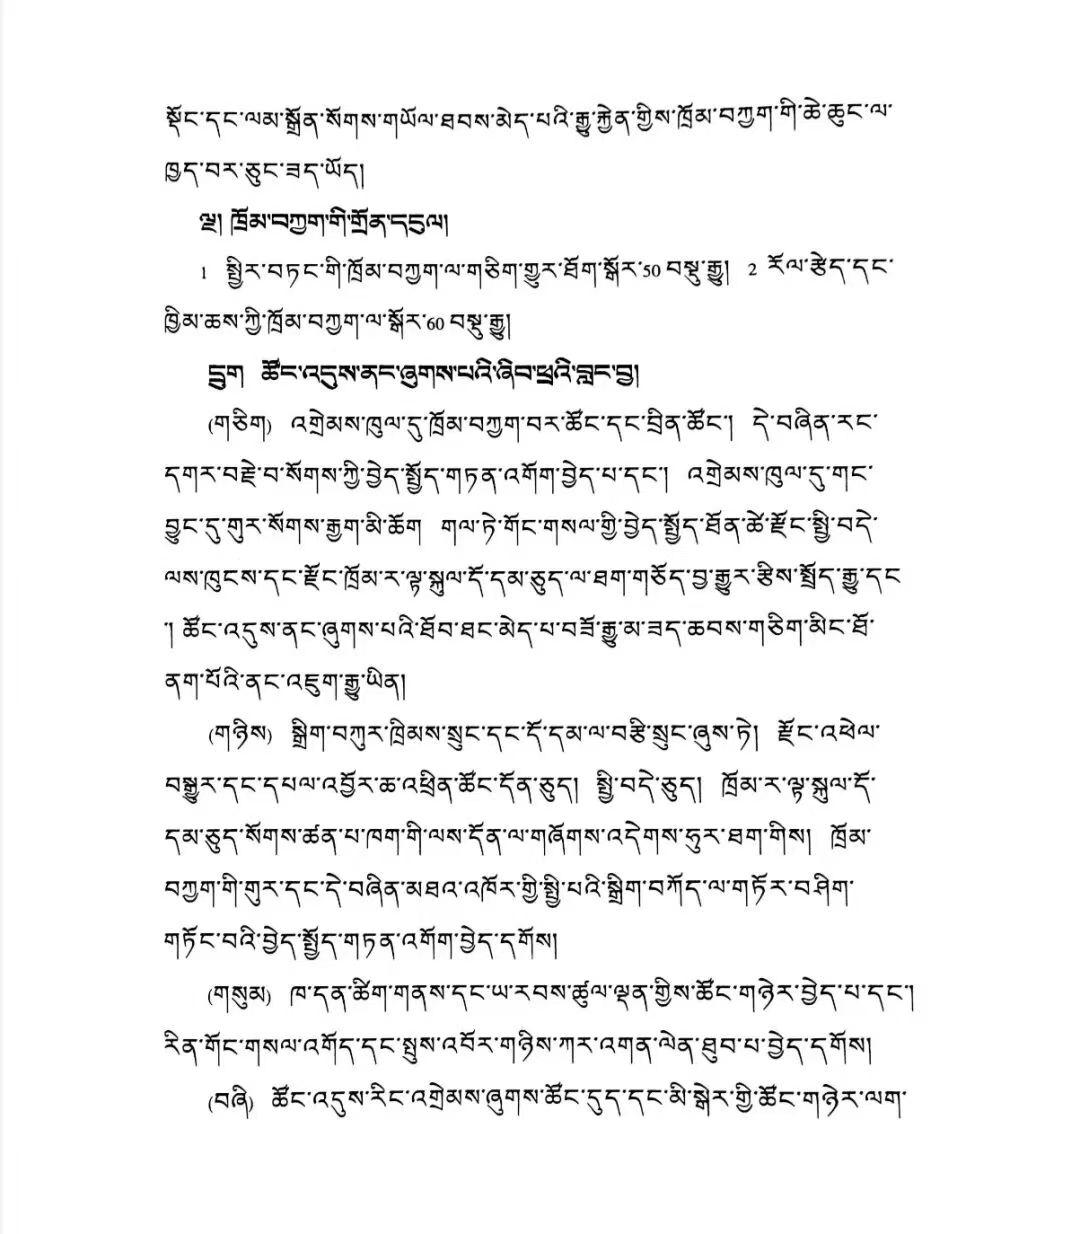 སྡོང་དང་ལམ་སྒྲོན་སོགས་གཡོལ་ཐབས་མེད་པའི་རྒྱུ་རྐྱེན་གྱིས་ཁྲོམ་བཀྱག་གི་ཆེ་ཆུང་ལ་
ཁྱད་བར་ཅུང་ཟད་ཡོད།
ལྔ། ཁྲོམ་བཀྱག་གི་གྲོན་དངུལ།
1 སྤྱིར་བཏང་གི་ཁྲོམ་བཀྱག་ལ་གཅིག་གྱུར་ཐོག་སྒོར་50བསྡུ་རྒྱུ། 2 རོལ་རྩེད་དང་
ཁྱིམ་ཆས་ཀྱི་ཁྲོམ་བཀྱག་ལ་སྒོར་60བསྡུ་རྒྱུ།
དྲུག ཚོང་འདུས་ནང་ཞུགས་པའི་ཞིབ་ཕྲའི་བླང་བྱ།
(གཅིག) འགྲེམས་ཁུལ་དུ་ཁྲོམ་བཀྱག་བར་ཚོང་དང་བྲིན་ཚོང་། དེ་བཞིན་རང་
དགར་བརྗེ་བ་སོགས་ཀྱི་བྱེད་སྤྱོད་གཏན་འགོག་བྱེད་པ་དང་། འགྲེམས་ཁུལ་དུ་གང་
བྱུང་དུ་གུར་སོགས་རྒྱག་མི་ཆོག གལ་ཏེ་གོང་གསལ་གྱི་བྱེད་སྤྱོད་ཐོན་ཚེ་རྫོང་སྤྱི་བདེ་
ལས་ཁུངས་དང་རྫོང་ཁྲོམ་ར་ལྟ་སྐུལ་དོ་དམ་ཅུད་ལ་ཐག་གཅོད་བྱ་རྒྱུར་རྩིས་སྤྲོད་རྒྱུ་དང
་། ཚོང་འདུས་ནང་ཞུགས་པའི་ཐོབ་ཐང་མེད་པ་བཟོ་རྒྱུ་མ་ཟད་ཆབས་གཅིག་མིང་ཐོ་
ནག་པོའི་ནང་འཇུག་རྒྱུ་ཡིན།
(གཉིས) སྒྲིག་བཀུར་ཁྲིམས་སྲུང་དང་དོ་དམ་ལ་བརྩི་སྲུང་ཞུས་ཏེ། རྫོང་འཕེལ་
བསྒྱུར་དང་དཔལ་འབྱོར་ཆ་འཕྲིན་ཚོང་དོན་ཅུད། སྤྱི་བདེ་ཅུད། ཁྲོམ་ར་ལྟ་སྐུལ་དོ་
དམ་ཅུད་སོགས་ཚན་པ་ཁག་གི་ལས་དོན་ལ་གཞོགས་འདེགས་ཧུར་ཐག་གིས། ཁྲོམ་
བཀྱག་གི་གུར་དང་དེ་བཞིན་མཐའ་འཁོར་གྱི་སྤྱི་པའི་སྒྲིག་བཀོད་ལ་གཏོར་བཤིག་
གཏོང་བའི་བྱེད་སྤྱོད་གཏན་འགོག་བྱེད་དགོས།
(གསུམ) ཁ་དན་ཚིག་གནས་དང་ཡ་རབས་ཚུལ་ལྡན་གྱིས་ཚོང་གཉེར་བྱེད་པ་དང་།
རིན་གོང་གསལ་འགོད་དང་སྤུས་འབོར་གཉིས་ཀར་འགན་ལེན་ཐུབ་པ་བྱེད་དགོས།
(བཞི) ཚོང་འདུས་རིང་འགྲེམས་ཞུགས་ཚོང་དུད་དང་མི་སྒེར་གྱི་ཚོང་གཉེར་ལག་